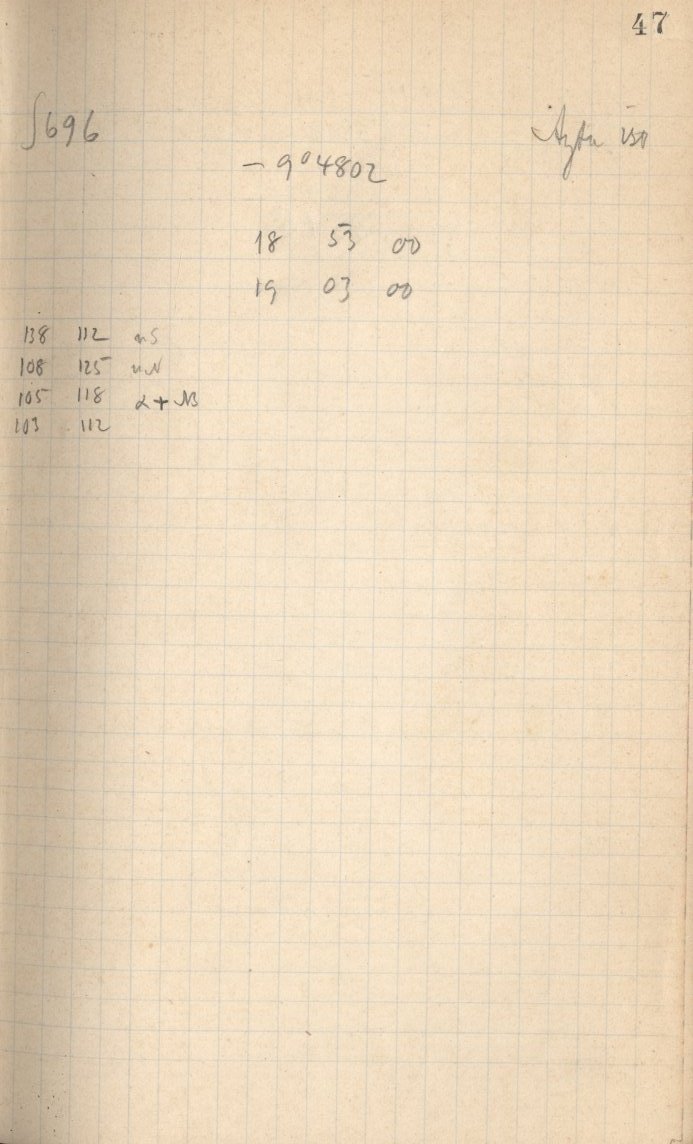 47
∫696
– 9°4802
18 53 00
19 03 00
138 112 nS
108 125 nN
105 118 α + NB
103 112